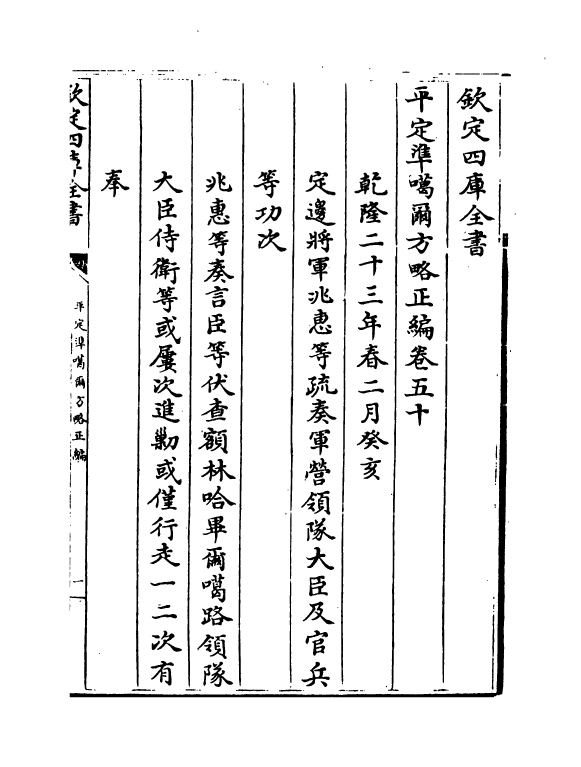 欽定四庫全書
平定準噶爾方略正編卷五十
乾隆二十三年春二月癸亥
定邊將軍兆惠等疏奏軍營領隊大臣及官兵
等功次
兆惠等奏言臣等伏查額林哈畢爾噶路領隊
大臣侍衛等或屢次進勦或僅行走一二次有
奉
欽定四庫全書
平定準噶爾方略正編
一